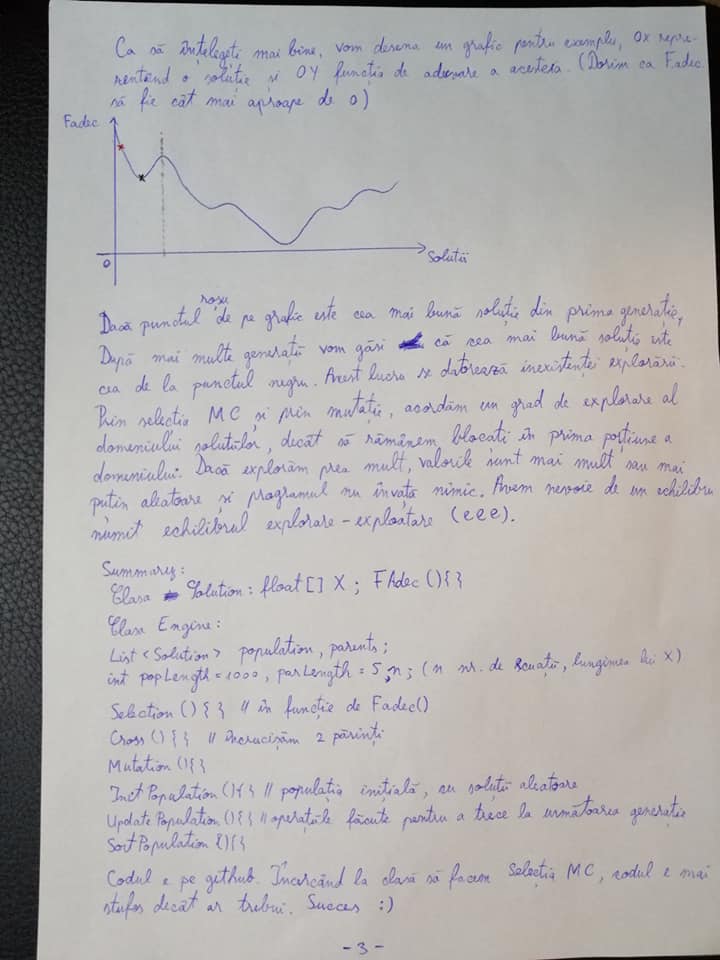 Ca să înțelegeți mai bine, vom desena un grafic pentru exemplu, OX repre-
zentând o soluție și OY funcția de adecvare a acesteia. (Dorim ca Fadec
să fie cât mai aproape de 0)
Fadec
0
Soluții
roșu
Dacă punctul de pe grafic este cea mai bună soluție din prima generație,
După mai multe generații vom găsi că cea mai bună soluție este
cea de la punctul negru. Acest lucru se datorează inexistenței explorării.
Prin selecția MC și prin mutație, acordăm un grad de explorare al
domeniului soluțiilor, decât să rămânem blocați în prima porțiune a
domeniului. Dacă explorăm prea mult, valorile sunt mai mult sau mai
puțin aleatoare și programul nu învață nimic. Avem nevoie de un echilibru
numit echilibrul explorare-exploatare (eee).
Summary:
Clasa Solution: float[] X; FAdec(){}
Clasa Engine:
List<Solution> population, parents;
int popLength=1000, parLength=5, n; (n nr. de ecuații, lungimea lui X)
Selection(){} // în funcție de Fadec()
Cross(){} // încrucișăm 2 părinți
Mutation(){}
InitPopulation(){} // populația inițială, cu soluții aleatoare
UpdatePopulation(){} // operațiile făcute pentru a trece la următoarea generație
SortPopulation(){}
Codul e pe github. Încercând la clasă să facem Selecția MC, codul e mai
stufos decât ar trebui. Succes :)
-3-